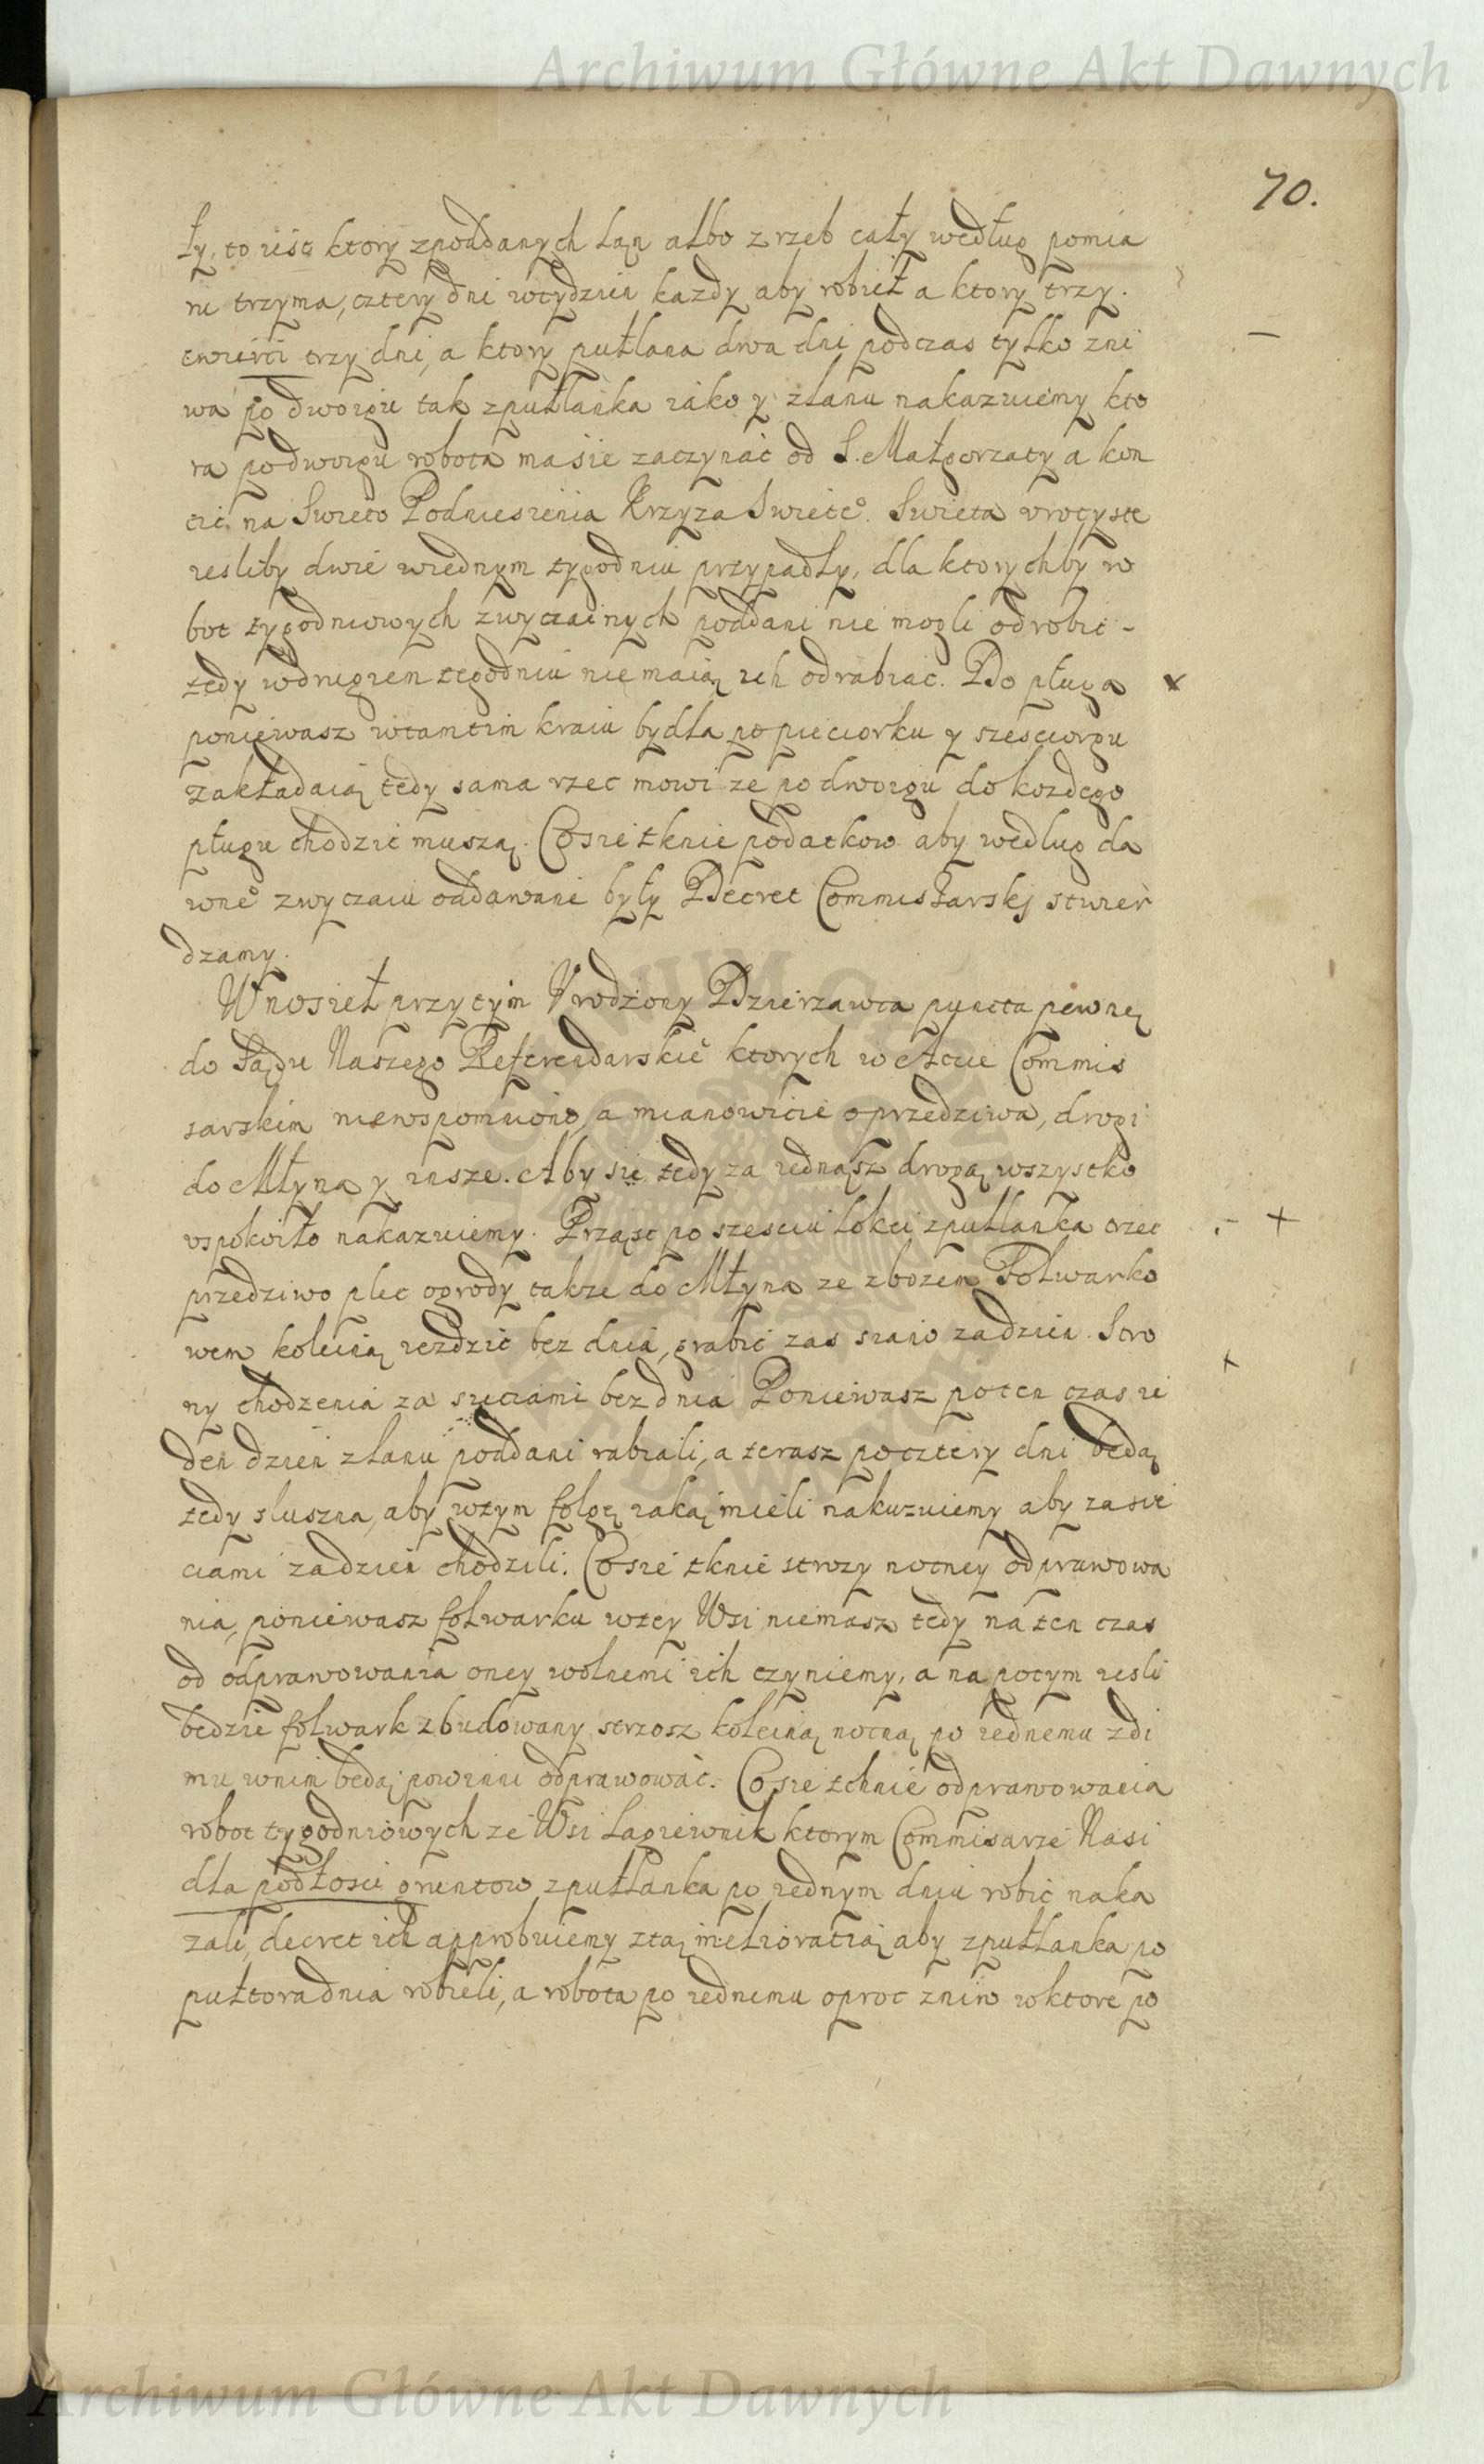 Archiwum Główne Akt Dawnych
70.
ły, to iest ktory zpoddanych Łan albo zrzeb cały według pomia
ru trzyma, cztery dni wtydzien kazdy aby robieł a ktory trzy.
cwierci trzy dni, a ktory pułlana dwa dni podczas tylko zni
wa po dworgu tak zpułlanka iako y złanu nakazuiemy kto
ra podworgu robota masie zaczynać od S. Małgorzaty a kon
cić na Swieto Podniesienia Krzyza Swiete°. Swieta vroczyste
iesliby dwie wiednym tygodniu przypadły, dla ktorychby ro
bot tygodniowych zwyczainych poddani nie mogli odrobic -
tedy wdrugiem tegodniu nie maią ich odrabiac. Do pługa
poniewasz wtamtim kraiu bydła po pieciorku y szesciorgu
zakładaią tedy sama rzec mowi ze po dworgu do kozdego
pługu chodzić muszą. Co sie tknie podatkow aby według da
wne° zwyczaiu oddawane były Decret Commissarskj stwier
dzamy.
Wnosieł przytym Vrodzony Dzierzawca puncta pewne
do Sądu Naszego Referendarskie° ktorych w Akcie Commis
sarskim niewspomniono, a mianowicie oprzedziwa, drogi
do Młyna y insze. Aby sie tedy za iednąsz drogą wszystko
vspokoiło nakazuiemy. Prząsc po szesciu łokci zpułlanka trzec
przedziwo plec ogrody także do Młyna ze zbozem Folwarko
wem koleiną iezdzic bez dnia, grabić zas siano zadzien. Stro
ny chodzenia za sieciami bez dnia Poniewasz poten czas ie
den dzien złanu poddani rabiali, a terasz pocztery dni bedą
tedy słuszna, aby wtym folgę iaką mieli nakazuiemy aby zasie
ciami zadzien chodzili. Co sie tknie strozy nocney odprawowa
nia, poniewasz folwarku wtey Wsi niemasz tedy na ten czas
od odprawowania oney wolnemi ich czyniemy, a na potym iesli
bedzie folwark zbudowany strzosz koleiną nocną po iednemu zdi
mu wnim bedą powinni odprawować. Co sie tchnie odprawowania
robot tygodniowych ze Wsi Łagiewnik ktorym Commisarze Nasi
dla podłosci gruntow zpułlanka po iednym dniu robic naka
zali, decret ich approbuiemy ztą melioratią aby zpułlanka po
pułtoradnia robieli, a robota po iednemu oproc zniw wktore po
Archiwum Główne Akt Dawnych